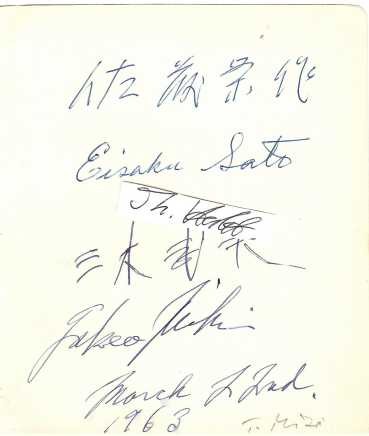 佐藤栄作
Eisaku Sato
Th.
三木武夫
Takeo Miki
March 22nd.
1963
T.